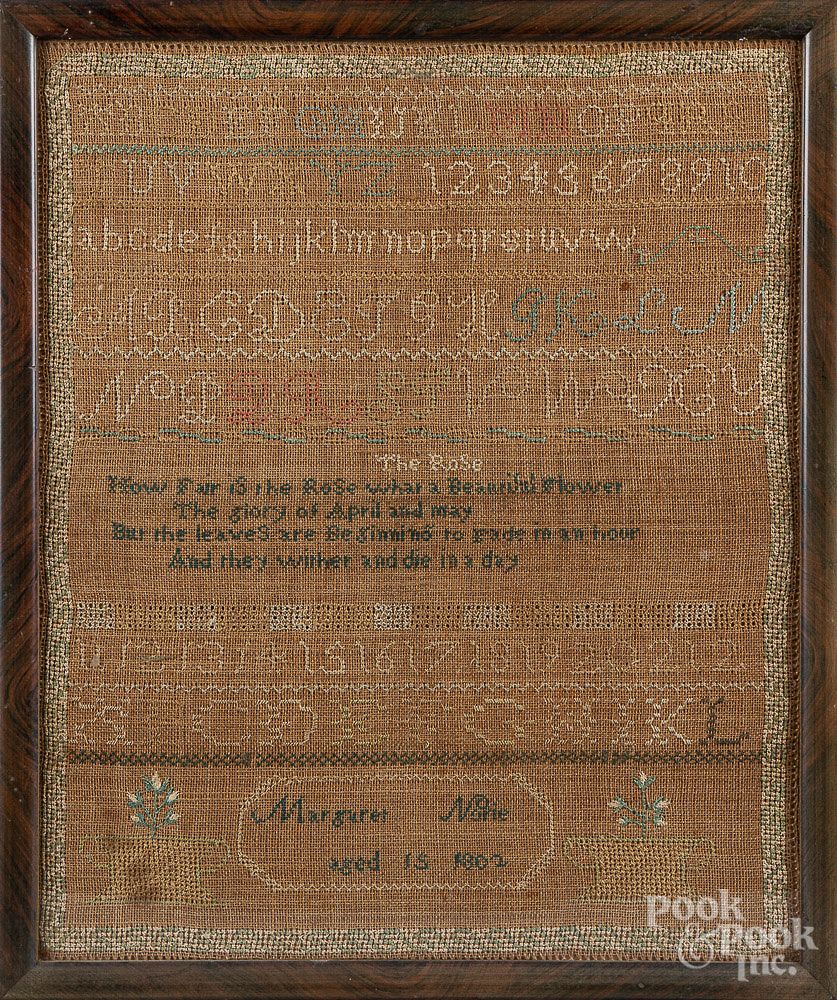 G H I K L M N O P
U V W X Y Z 1 2 3 4 5 6 7 8 9 10
a b c d e f g h i j k l m n o p q r s t u v w
A B C D E F G H I K L M
N O P Q R S T V W X Y
The RoSe
How Fair iS the RoSe what a Beautiful Flower
The glory of April and may
But the leaveS are Beginning to fade in an hour
And they wither and die in a day
11 12 13 14 15 16 17 18 19 20 21 2
C D E F G H I K L
Margaret
aged 15 1802
Pook & Pook Inc.